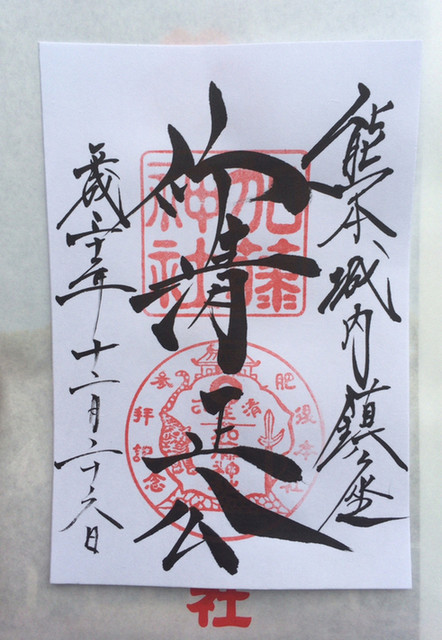 熊本城内鎮坐
仰清正公
平成二十年十二月二十六日
加藤
神社
肥後本社
参拝記念
社